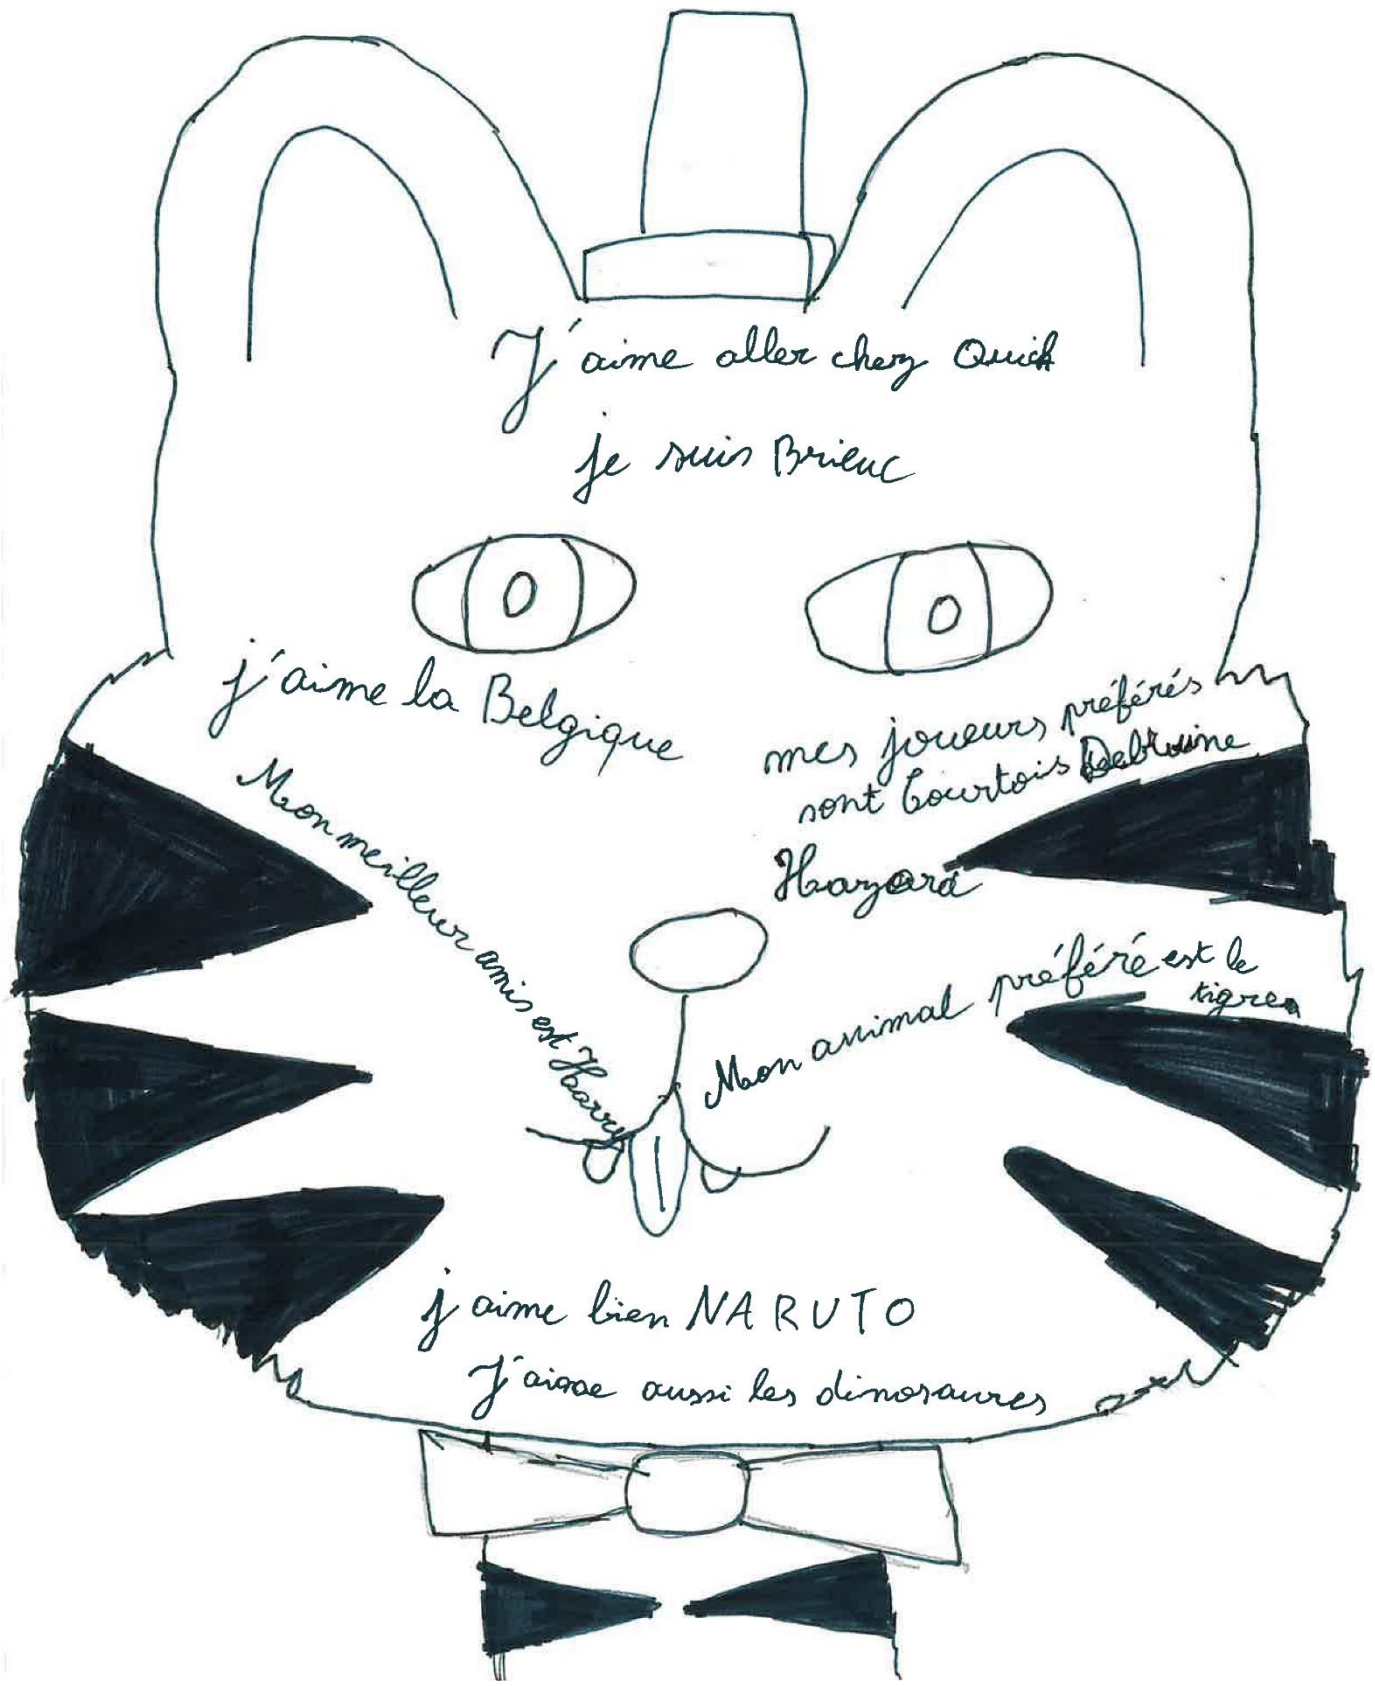 J'aime aller chez Quick
je suis Brieuc
j'aime la Belgique
mes joueurs préférés
sont Courtois Debruine
Hazard
Mon meilleur amis est Harry
Mon animal préféré est le
tigre
j aime bien NARUTO
J'aime aussi les dinosaures